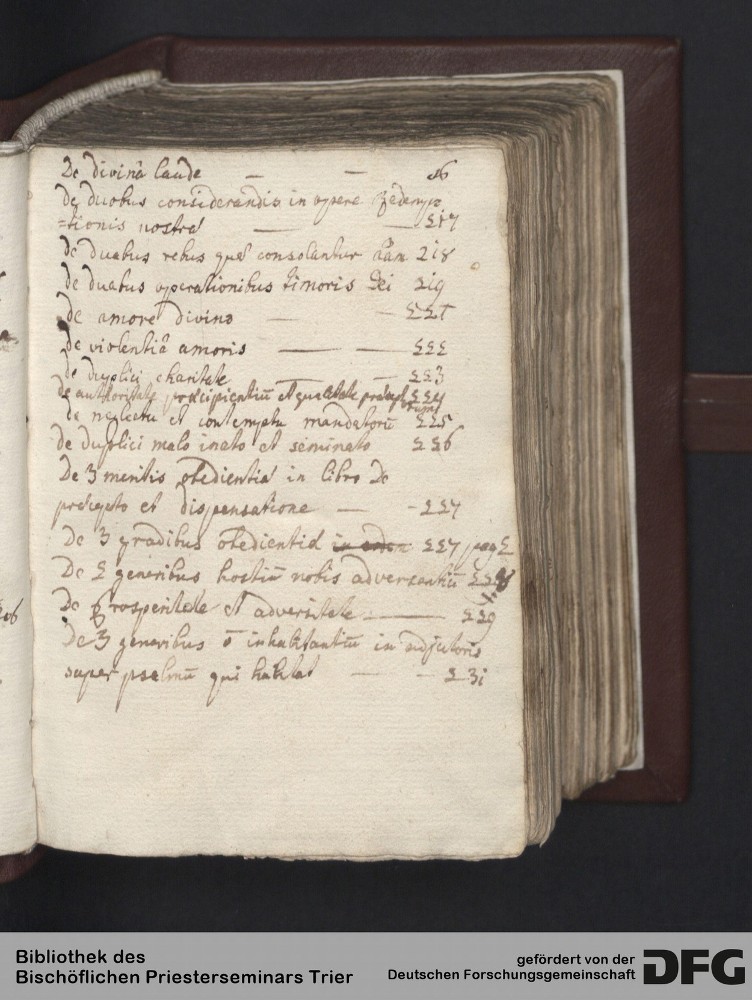 De divinâ laude — — 216
De duobus considerandis in opere Redemp
=tionis nostræ — — 217
de duabus rebus quæ consolantur aãm 218
de duabus operationibus timoris Dei 219
de amore divino — — 221
de violentiâ amoris — — 222
de duplici charitate — — 223
de authoritate præcipientiũ et qualitate præceptorum 224
de neglectu et contemptu mandatorũ 225
de duplici malo inato et seminato 226
De 3 meritis obedientiæ in libro de
præcepto et dispensatione — - 227
De 3 gradibus obedientiæ 227 pag 2
De 2 generibus hostiũ nobis adversantiũ 228
De prosperitate et adversitate — 229
De 3 generibus õ inhabitantiũ in adjutorio
super psalmũ qui habitat — - 231
Bibliothek des
Bischöflichen Priesterseminars Trier
gefördert von der
Deutschen Forschungsgemeinschaft
DFG